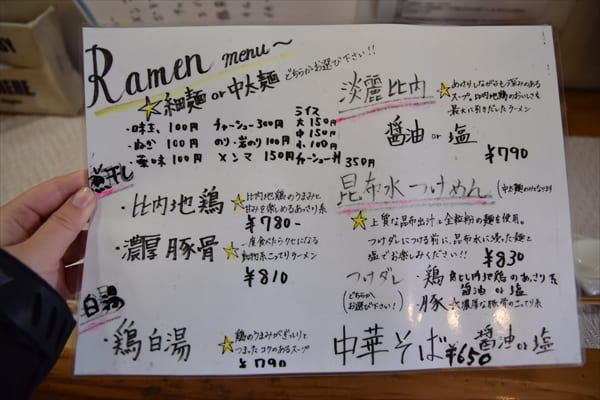 Ramen menu〜
★細麺 or 中太麺 どちらかお選び下さい!!
・味玉 100円 チャーシュー300円
・ねぎ 100円 のり・岩のり100円
・薬味 100円 メンマ 150円 チャーシュー丼 350円
ライス
大 150円
中 150円
小 100円
煮干し
・比内地鶏 ★比内地鶏のうまみと
甘みを楽しめるあっさり系
¥780-
・濃厚豚骨 ★一度食べたらクセになる
動物系こってりラーメン
¥810
白湯
・鶏白湯 ★鶏のうまみがぎっしりと
つまったコクのあるスープ
¥790
淡麗比内 ★あっさりしながらも深みのある
スープ。比内地鶏のおいしさを
最大に引きだしたラーメン
醤油 or 塩
¥790
昆布水つけめん (中太麺のみになります
★上質な昆布出汁と全粒粉の麺を使用。
つけダレにつける前に、昆布水に浸った麺と
塩でお楽しみください!! ¥830
つけダレ
(どちらかお選び下さい!)
・鶏 比内地鶏のあっさり系
醤油 or 塩
・豚 濃厚な豚骨のこってり系
中華そば ¥650 醤油 or 塩